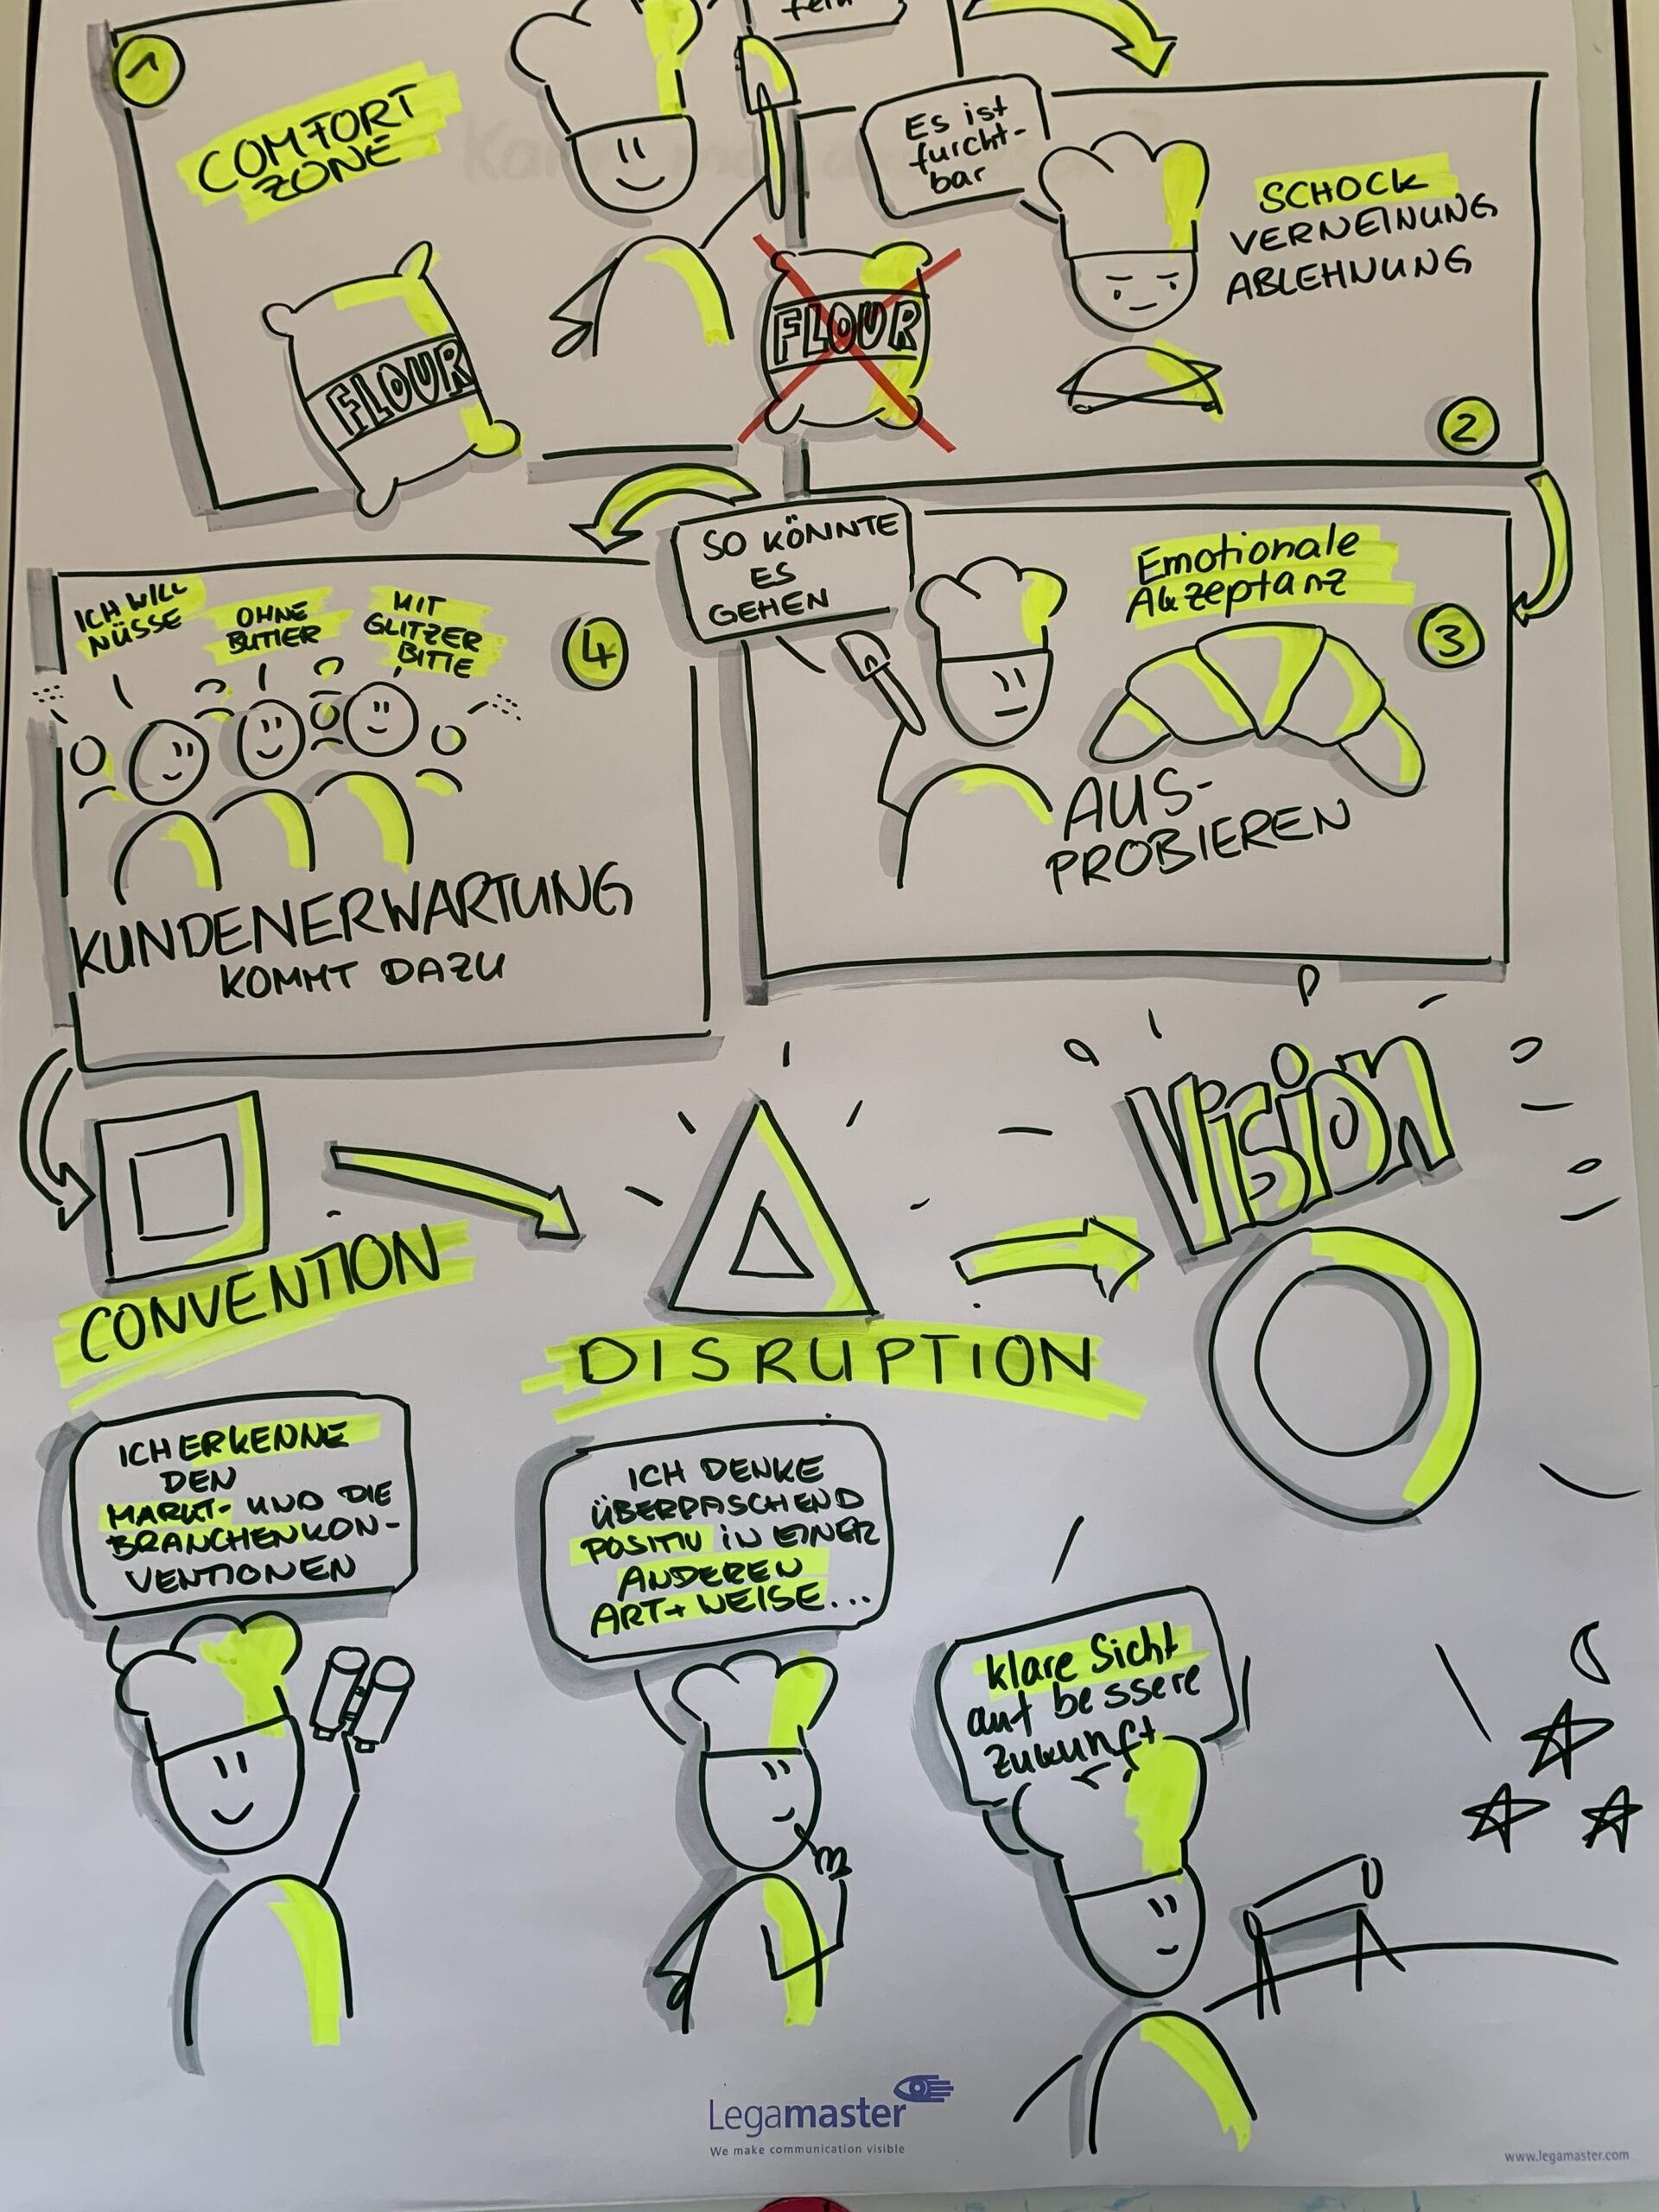 1
COMFORT
ZONE
FLOUR
Es ist
furcht-
bar
FLOUR
SCHOCK
VERNEINUNG
ABLEHNUNG
2
SO KÖNNTE
ES
GEHEN
Emotionale
Akzeptanz
3
AUS-
PROBIEREN
ICH WILL
NÜSSE
OHNE
BUTTER
MIT
GLITZER
BITTE
4
KUNDENERWARTUNG
KOMMT DAZU
CONVENTION
DISRUPTION
Vision
ICH ERKENNE
DEN
MARKT- UND DIE
BRANCHENKON-
VENTIONEN
ICH DENKE
ÜBERRASCHEND
POSITIV IN EINER
ANDEREN
ART + WEISE...
klare Sicht
auf bessere
Zukunft
Legamaster
We make communication visible
www.legamaster.com